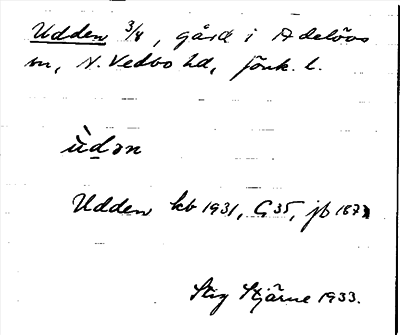 Udden 3/8, gård i Adelövs
sn, N. Vedbo hd, Jönk. l.
ùdən
Udden kb 1931, G 35, jb 1877
Stig Stjärne 1933.